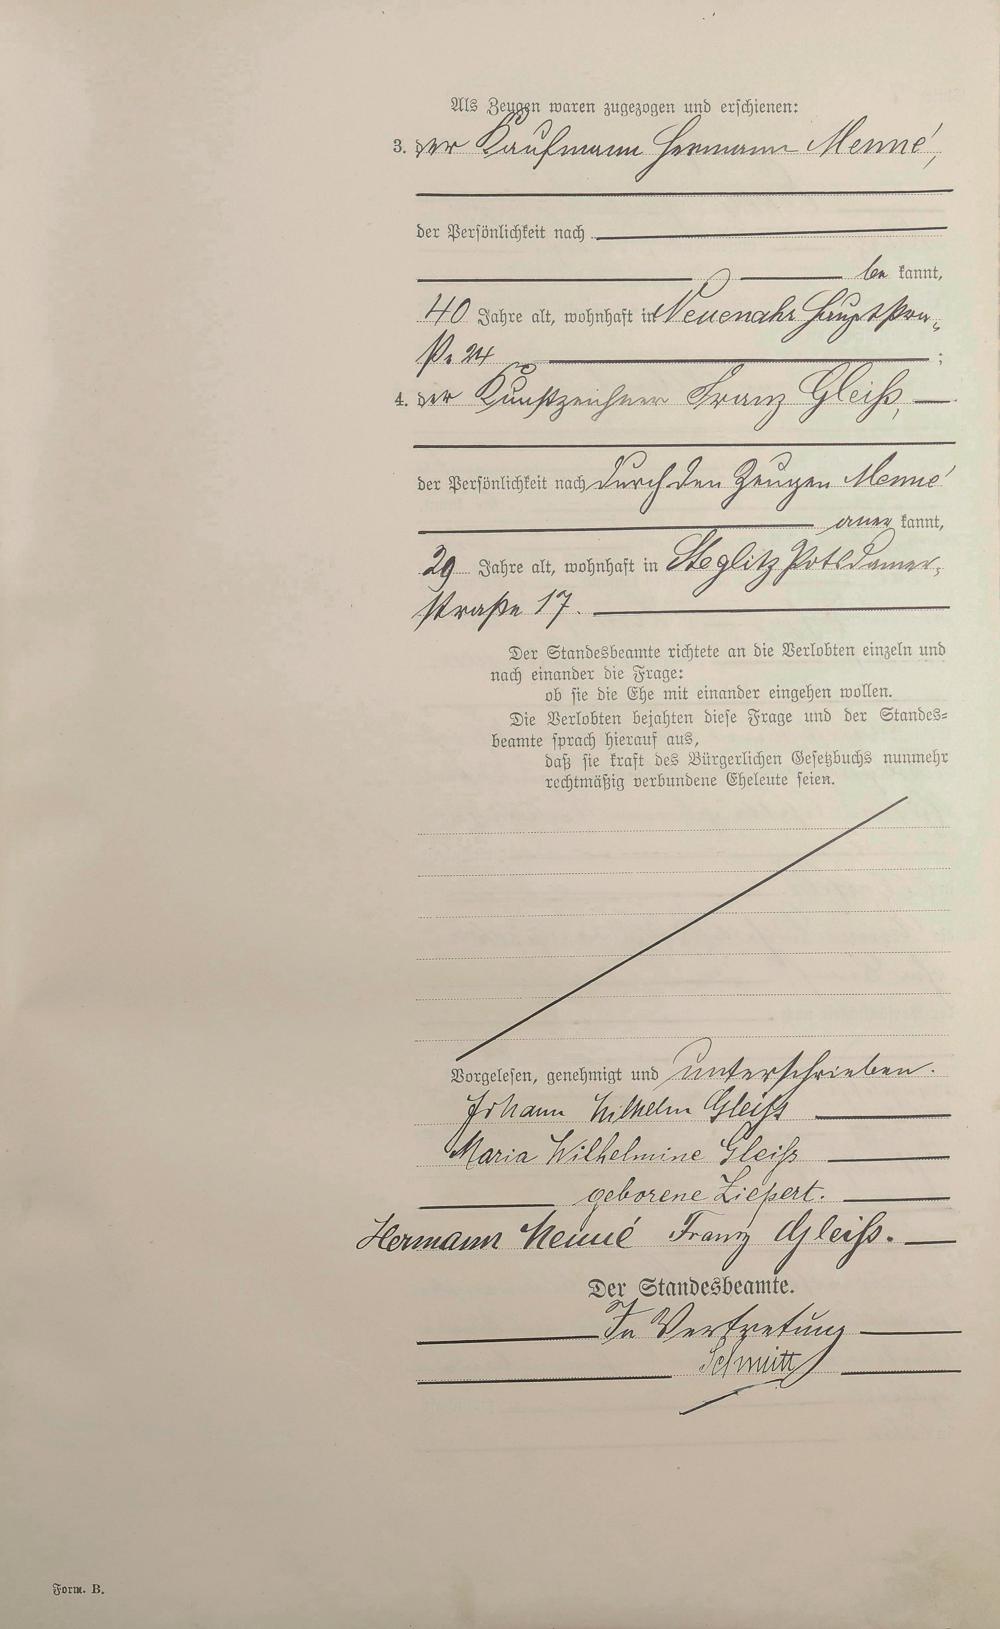 Als Zeugen waren zugezogen und erschienen:
3. der Kaufmann Hermann Menné,
der Persönlichkeit nach
be kannt,
40 Jahre alt, wohnhaft in Neuenahr Hauptstra-
ße 24 ;
4. der Kunstzeichner Franz Gleiß,
der Persönlichkeit nach durch den Zeugen Menné
aner kannt,
29 Jahre alt, wohnhaft in Steglitz Potsdamer-
straße 17.
Der Standesbeamte richtete an die Verlobten einzeln und
nach einander die Frage:
ob sie die Ehe mit einander eingehen wollen.
Die Verlobten bejahten diese Frage und der Standes=
beamte sprach hierauf aus,
daß sie kraft des Bürgerlichen Gesetzbuchs nunmehr
rechtmäßig verbundene Eheleute seien.
Vorgelesen, genehmigt und unterschrieben.
Johann Wilhelm Gleiß
Maria Wilhelmine Gleiß
geborene Liepert.
Hermann Menné Franz Gleiß.
Der Standesbeamte.
In Vertretung
Schmitt
Form. B.